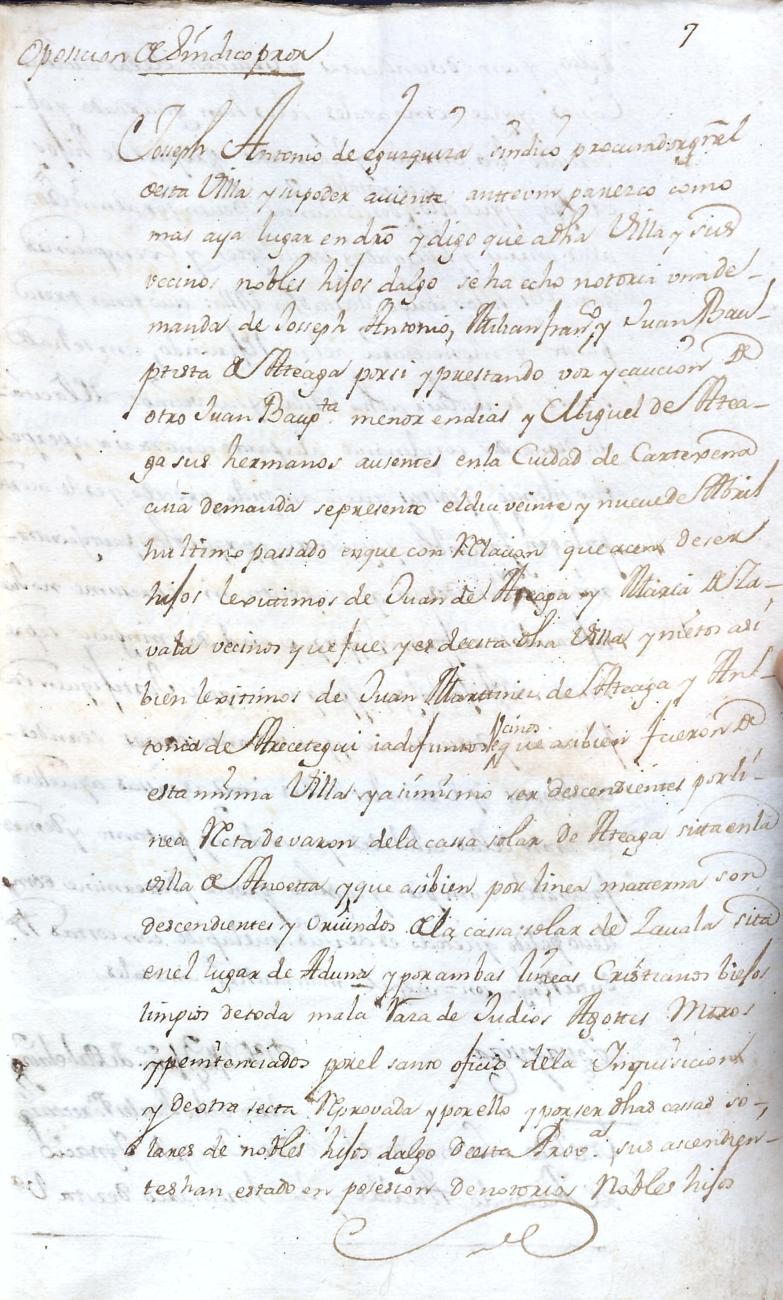 7
Oposicion de Síndico pror
Joseph Antonio de eguzquiza sindico procurador gñel
desta Villa y su poder aviente antte vm parezco como
mas aya lugar en dro y digo que a dha Villa y sus
vecinos nobles hijos dalgo se ha echo notoria una de-
manda de Joseph Antonio, Milian franco y Juan Bau-
ptista de Atteaga por si y prestando voz y caucion de
otro Juan Baupta menor en dias y Miguel de Attea-
ga sus hermanos ausentes en la Cuidad de Cartexena
cuia demanda se presento el dia veinte y nueve de Abril
hultimo passado en que con Relacion que acen de ser
hijos lexitimos de Juan de Atteaga y Maria de Za-
vala vecinos que fue y es de esta dha Villa y nietos asi
bien lexitimos de Juan Marttinez de Atteaga y Ant-
tonia de Arecetegui ia difuntos vecinos que asibien fueron de
esta misma Villa y asimismo ser descendientes por li-
nea Recta de varon de la cassa solar de Atteaga sitta en la
villa de Anoetta y que asibien por linea matterna son
descendientes y oriundos de la cassa solar de Zavala sita
en el lugar de Aduna y por ambas lineas Cristianos biejos
limpios de toda mala Raza de Judios Agottes Moros
y penitenciados por el santo oficio de la Inquisicion
y de otra secta Reprovada y por ello y por ser dhas cassas so-
lares de nobles hijos dalgo de esta Prova sus ascendien-
tes han estado en posesion de notorios Nobles hijos